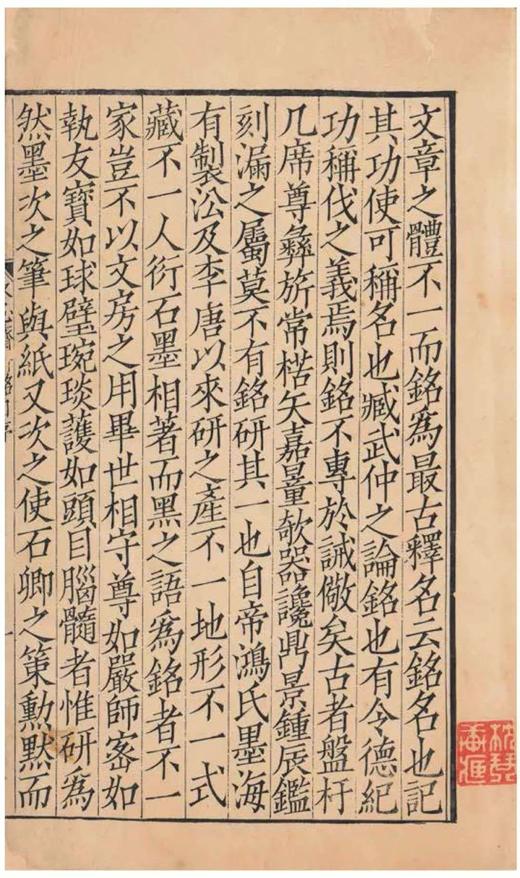 文章之體不一而銘爲最古釋名云銘名也記
其功使可稱名也臧武仲之論銘也有令德紀
功稱伐之義焉則銘不專於誡儆矣古者盤杅
几席尊彝旂常楛矢嘉量欹器讒鼎景鍾辰鑑
刻漏之屬莫不有銘研其一也自帝鴻氏墨海
有製㳂及李唐以來研之產不一地形不一式
藏不一人衍石墨相著而黑之語爲銘者不一
家豈不以文房之用畢世相守尊如嚴師宻如
執友寶如球璧琬琰護如頭目腦髓者惟研爲
然墨次之筆與紙又次之使石卿之策勳黙而